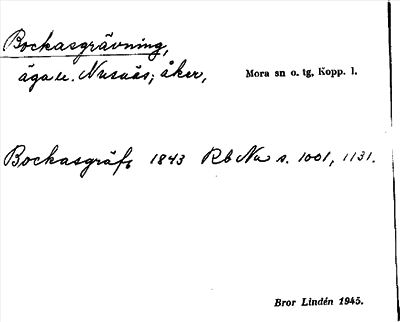 Bockasgrävning,
äga u. Nusnäs; åker, Mora sn o. tg, Kopp. l.
Bockasgräf, 1843 Rb Nu s. 1001, 1131.
Bror Lindén 1945.